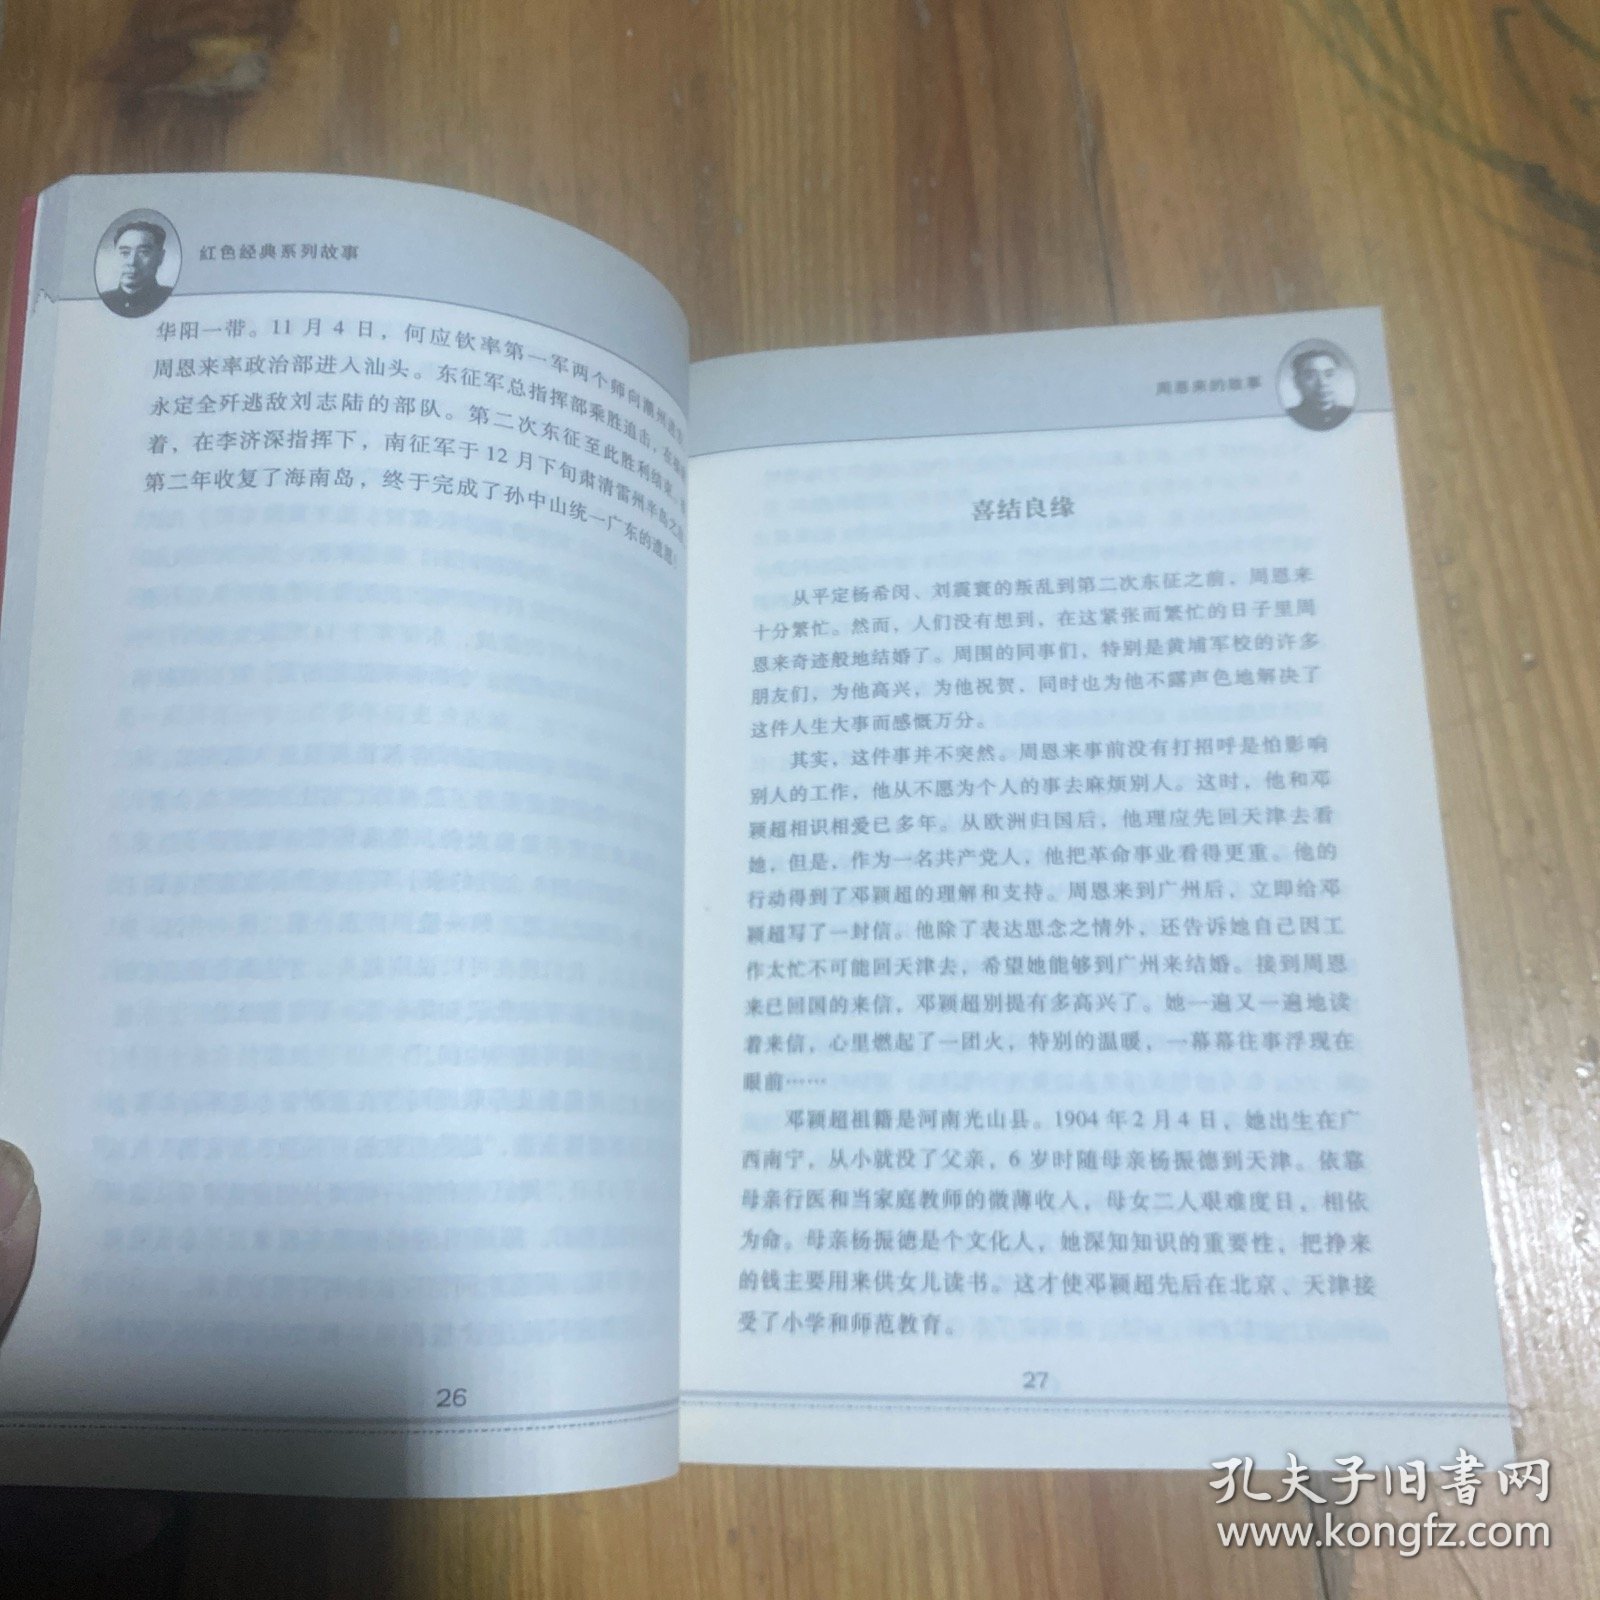 红色经典系列故事
华阳一带。11 月 4 日，何应钦率第一军两个师向潮州
周恩来率政治部进入汕头。东征军总指挥部乘胜追击，在
永定全歼逃敌刘志陆的部队。第二次东征至此胜利结束。
着，在李济深指挥下，南征军于 12 月下旬肃清雷州半岛之
第二年收复了海南岛，终于完成了孙中山统一广东的遗愿！
26
周恩来的故事
喜结良缘
从平定杨希闵、刘震寰的叛乱到第二次东征之前，周恩来
十分繁忙。然而，人们没有想到，在这紧张而繁忙的日子里周
恩来奇迹般地结婚了。周围的同事们，特别是黄埔军校的许多
朋友们，为他高兴，为他祝贺，同时也为他不露声色地解决了
这件人生大事而感慨万分。
其实，这件事并不突然。周恩来事前没有打招呼是怕影响
别人的工作，他从不愿为个人的事去麻烦别人。这时，他和邓
颖超相识相爱已多年。从欧洲归国后，他理应先回天津去看
她，但是，作为一名共产党人，他把革命事业看得更重。他的
行动得到了邓颖超的理解和支持。周恩来到广州后，立即给邓
颖超写了一封信。他除了表达思念之情外，还告诉她自己因工
作太忙不可能回天津去，希望她能够到广州来结婚。接到周恩
来已回国的来信，邓颖超别提有多高兴了。她一遍又一遍地读
着来信，心里燃起了一团火，特别的温暖，一幕幕往事浮现在
眼前……
邓颖超祖籍是河南光山县。1904 年 2 月 4 日，她出生在广
西南宁，从小就没了父亲，6 岁时随母亲杨振德到天津。依靠
母亲行医和当家庭教师的微薄收入，母女二人艰难度日，相依
为命。母亲杨振德是个文化人，她深知知识的重要性，把挣来
的钱主要用来供女儿读书。这才使邓颖超先后在北京、天津接
受了小学和师范教育。
27
孔夫子旧书网
www.kongfz.com